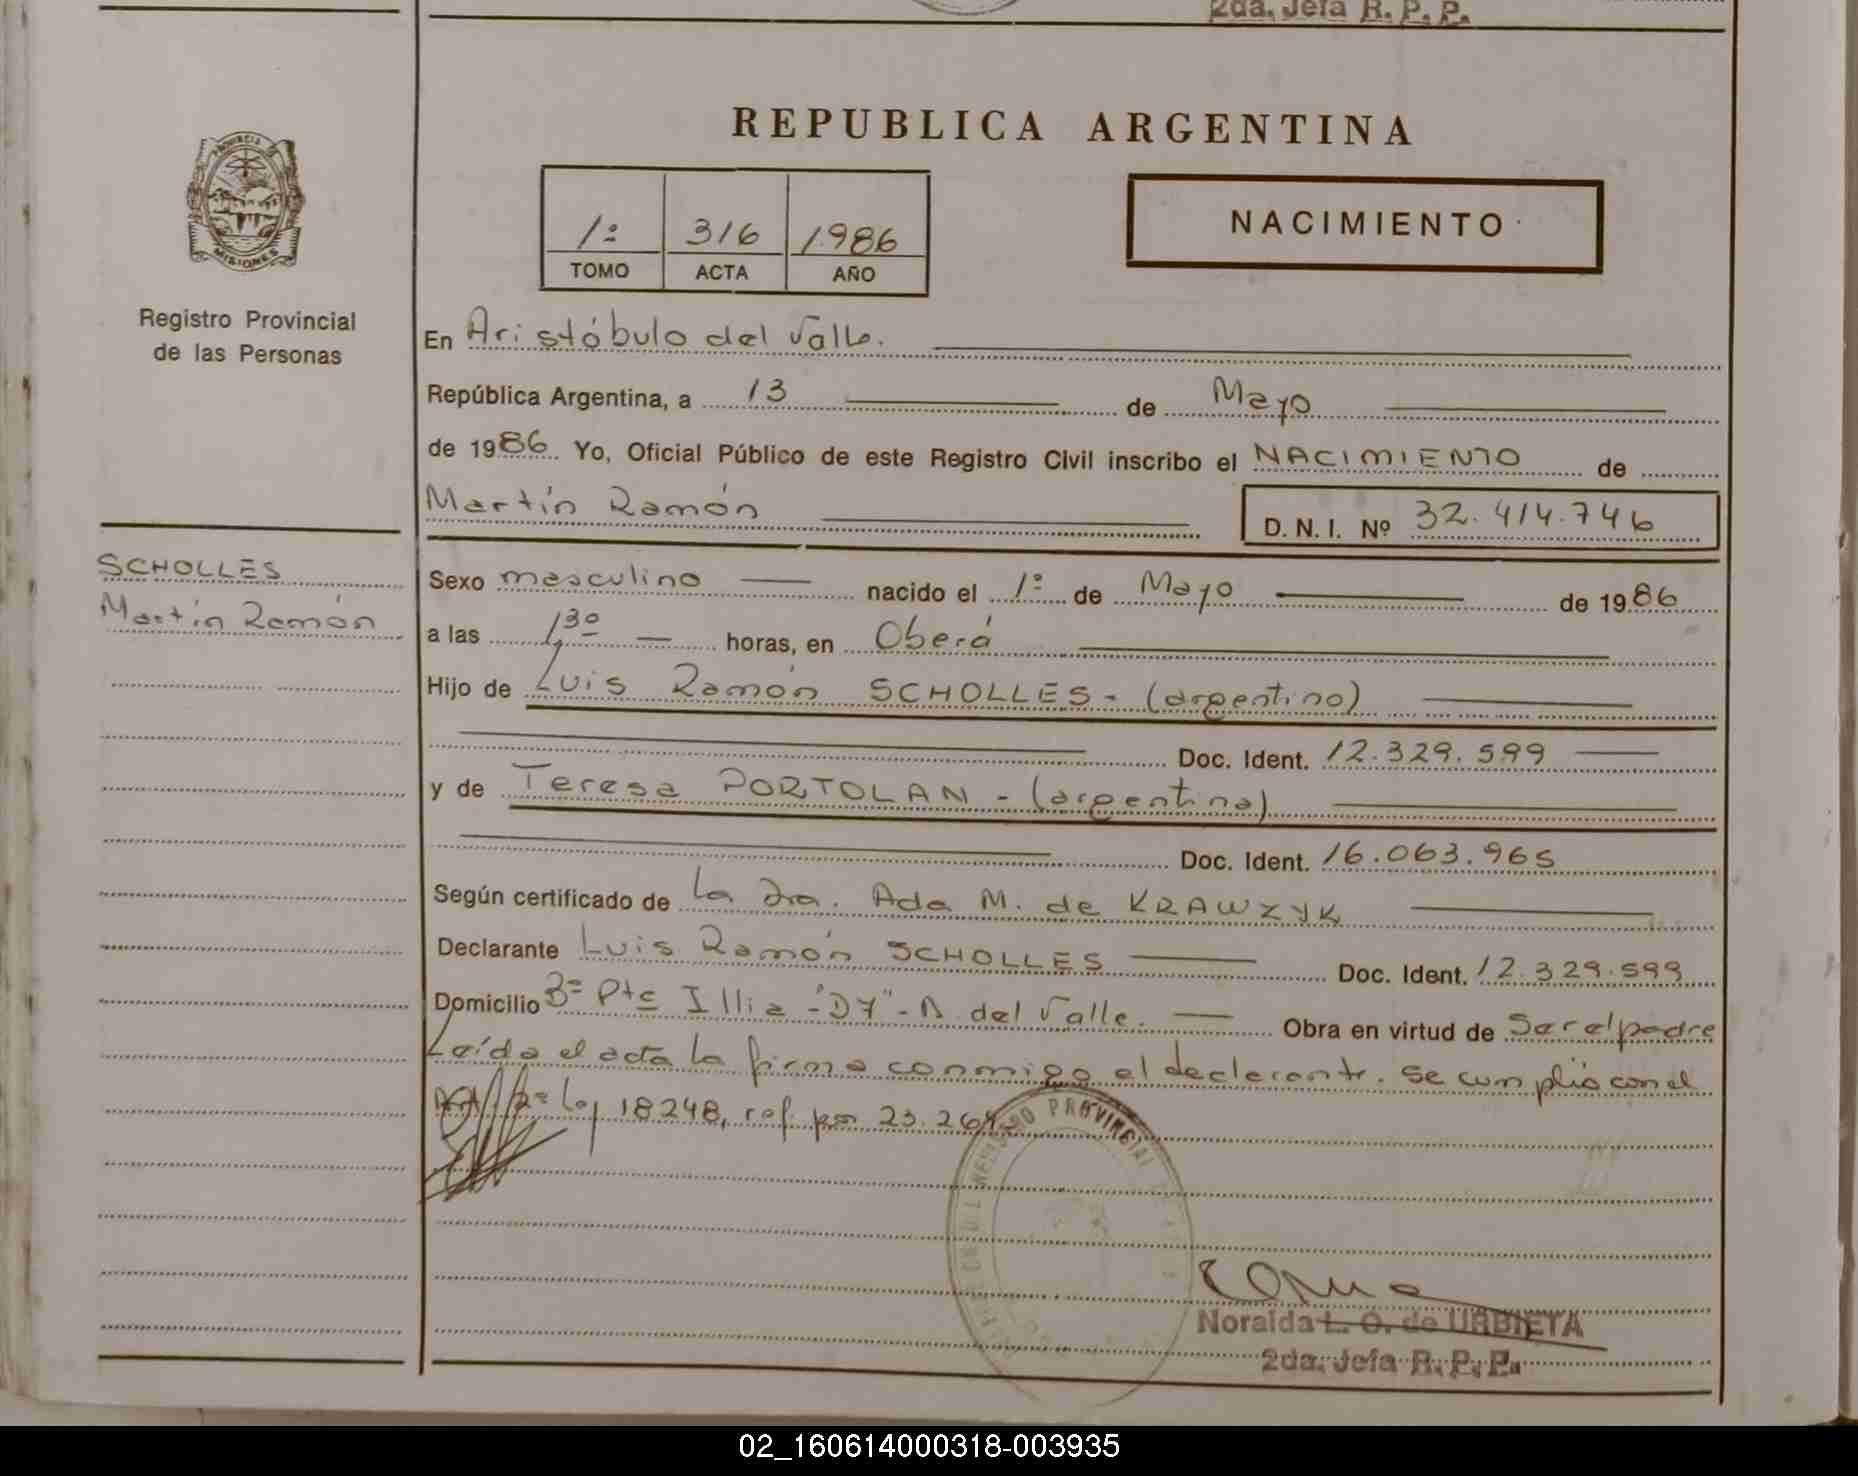 2da. Jefa R. P. P.
REPUBLICA ARGENTINA
PROVINCIA DE
MISIONES
1º 316 1986
TOMO ACTA AÑO
NACIMIENTO
Registro Provincial
de las Personas
En Aristóbulo del Valle.
República Argentina, a 13 de Mayo
de 1986 Yo, Oficial Público de este Registro Civil inscribo el NACIMIENTO de
Martín Ramón
D. N. I. Nº 32.414.746
SCHOLLES
Martín Ramón
Sexo masculino nacido el 1º de Mayo de 1986
a las 1,30 horas, en Oberá
Hijo de Luis Ramón SCHOLLES - (argentino)
Doc. Ident. 12.329.599
y de Teresa PORTOLAN - (argentina)
Doc. Ident. 16.063.965
Según certificado de La Dra. Ada M. de KRAWZYK
Declarante Luis Ramón SCHOLLES Doc. Ident. 12.329.599
Domicilio Bº Pte Illia -"D7"- A. del Valle. Obra en virtud de Ser el padre
Leída el acta la firma conmigo el declarante. Se cumplió con el
Art. 2º ley 18248, ref. por 23.264
PROVINCIAL
Noralda L. O. de URBIETA
2da. Jefa R. P. P.
02_160614000318-003935